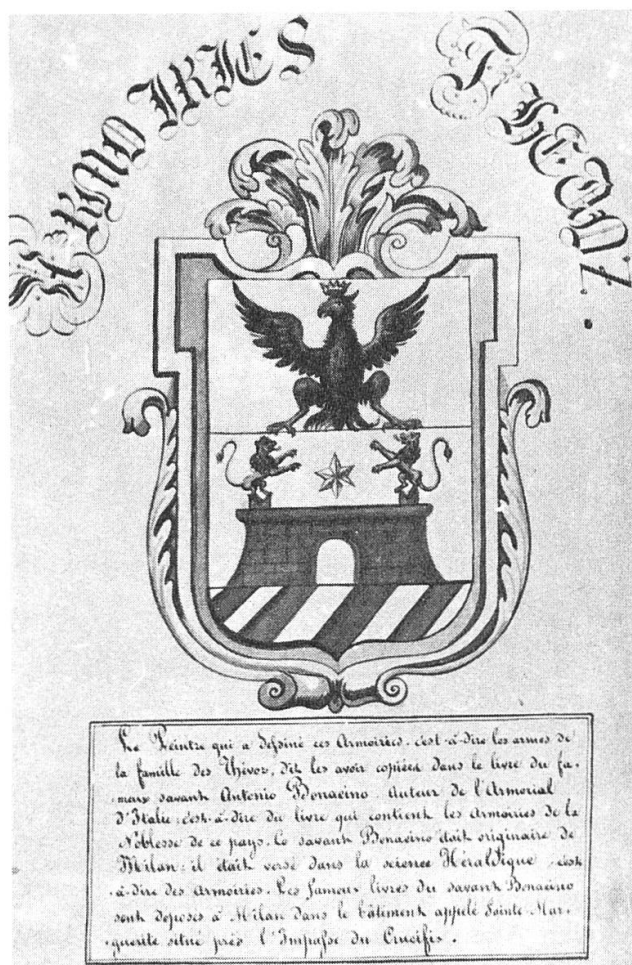 ARMOIRIES THEVOZ.
Le Peintre qui a dessiné ces Armoiries, c'est-à-dire les armes de
la famille des Thévoz, dit les avoir copiées dans le livre du fa-
-meux savant Antonio Bonacino, auteur de l'Armorial
d'Italie, c'est-à-dire du livre qui contient les armoiries de la
Noblesse de ce pays. Ce savant Bonacino était originaire de
Milan; il était versé dans la science Héraldique, c'est
-à-dire des armoiries. Les fameux livres du savant Bonacino
sont déposés à Milan dans le bâtiment appelé Sainte-Mar-
-guerite situé près l'Impasse du Crucifis.